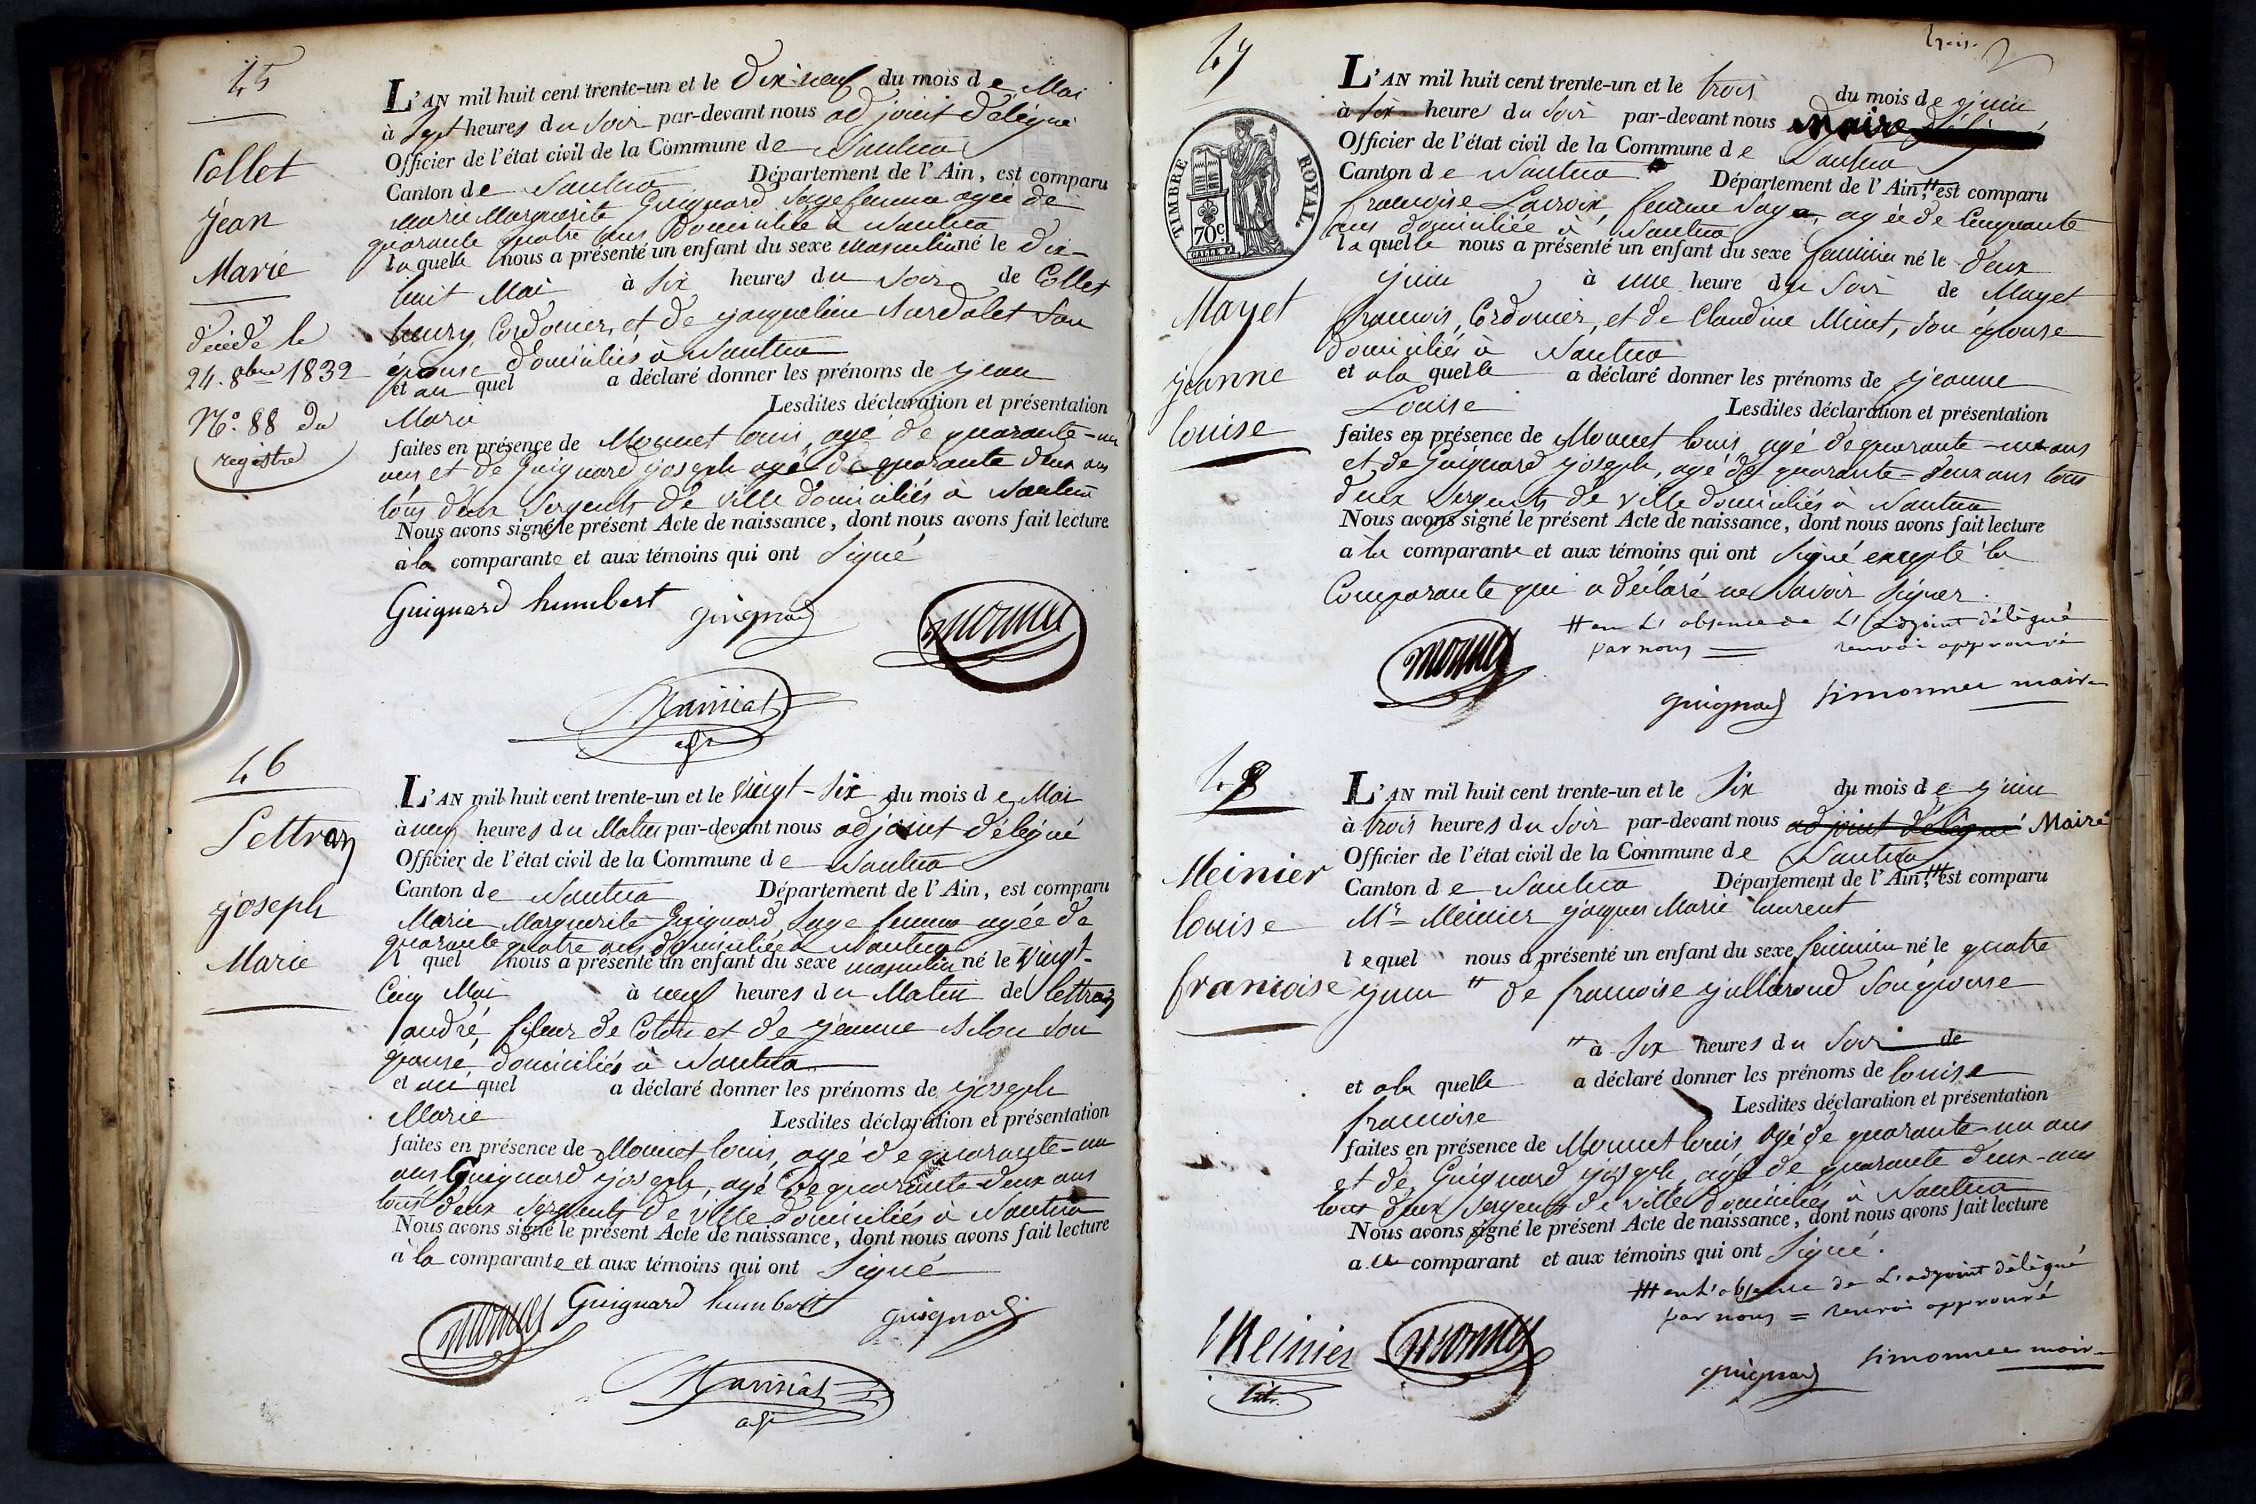 45
Collet
jean
Marie
décédé le
24. 8bre 1832
No. 88 du
registre
L'AN mil huit cent trente-un et le Dix neuf du mois de Mai
à Sept heures du Soir par-devant nous adjoint délégué
Officier de l'état civil de la Commune de Nantua
Canton de Nantua Département de l'Ain, est comparu
marie Marguerite Guignard Sage femme agée de
quarante quatre ans Domiciliée à Nantua
laquelle nous a présenté un enfant du sexe masculin né le dix-
huit Mai à Six heures du Soir de Collet
henry, Cordonier, et de jacqueline Son
épouse domiciliés à Nantua
et au quel a déclaré donner les prénoms de jean
Marie Lesdites déclaration et présentation
faites en présence de Monnet louis, agé de quarante-un
ans et de Guignard joseph agé de quarante deux ans
tous deux Sergents de ville domiciliés à Nantua
Nous avons signé le présent Acte de naissance, dont nous avons fait lecture
à la comparante et aux témoins qui ont Signé
Guignard humbert guignard monnet
adj
46
Lettraz
joseph
Marie
L'AN mil huit cent trente-un et le vingt-Six du mois de Mai
à neuf heures du Matin par-devant nous adjoint délégué
Officier de l'état civil de la Commune de Nantua
Canton de Nantua Département de l'Ain, est comparu
Marie Marguerite Guignard, Sage femme agée de
quarante quatre ans domiciliée à Nantua
l quel nous a présenté un enfant du sexe masculin né le Vingt-
Cinq Mai à neuf heures du Matin de Lettraz
andré, fileur de Coton et de jeanne Son
épouse, domiciliés à Nantua
et au quel a déclaré donner les prénoms de joseph
Marie Lesdites déclaration et présentation
faites en présence de Monnet louis, agé de quarante-un
ans Guignard joseph, agé de quarante-deux ans
tous deux Sergents de ville domiciliés à Nantua
Nous avons signé le présent Acte de naissance, dont nous avons fait lecture
à la comparante et aux témoins qui ont Signé
monnet Guignard humbert guignard
adj
47
Mayet
jeanne
louise
TIMBRE ROYAL
70c
L'AN mil huit cent trente-un et le trois du mois de juin
à Six heures du Soir par-devant nous Maire
Officier de l'état civil de la Commune de Nantua
Canton de Nantua Département de l'Ain, # est comparu
francoise Lacroix femme Sage, agée de Cinquante
ans domiciliée à Nantua
laquelle nous a présenté un enfant du sexe feminin né le deux
juin à une heure du Soir de Mayet
francois, Cordonier, et de Claudine Minet, Son épouse
domiciliés à Nantua
et a la quelle a déclaré donner les prénoms de jeanne
Louise Lesdites déclaration et présentation
faites en présence de Monnet louis, agé de quarante-un ans
et de Guignard joseph, agé de quarante-deux ans tous
deux Sergents de ville domiciliés à Nantua
Nous avons signé le présent Acte de naissance, dont nous avons fait lecture
a la comparante et aux témoins qui ont Signé excepté la
Comparante qui a déclaré ne Savoir Signer.
# en L'absence de L'adjoint délégué
par nous = renvoi approuvé
monnet guignard Simonnet maire
48
Meinier
louise
francoise
L'AN mil huit cent trente-un et le Six du mois de juin
à trois heures du Soir par-devant nous adjoint délégué Maire
Officier de l'état civil de la Commune de Nantua
Canton de Nantua Département de l'Ain, # est comparu
Mr Meinier jaques Marie laurent
lequel nous a présenté un enfant du sexe feminin né le quatre
juin # de francoise julliaroud Son épouse
# à Six heures du Soir de
et a la quelle a déclaré donner les prénoms de louise
francoise Lesdites déclaration et présentation
faites en présence de Monnet louis, agé de quarante-un ans
et de Guignard joseph, agé de quarante deux-ans
tous deux Sergents de ville domiciliés à Nantua
Nous avons signé le présent Acte de naissance, dont nous avons fait lecture
au comparant et aux témoins qui ont Signé.
# en L'absence de L'adjoint délégué
par nous = renvoi approuvé
Meinier monnet guignard Simonnet maire